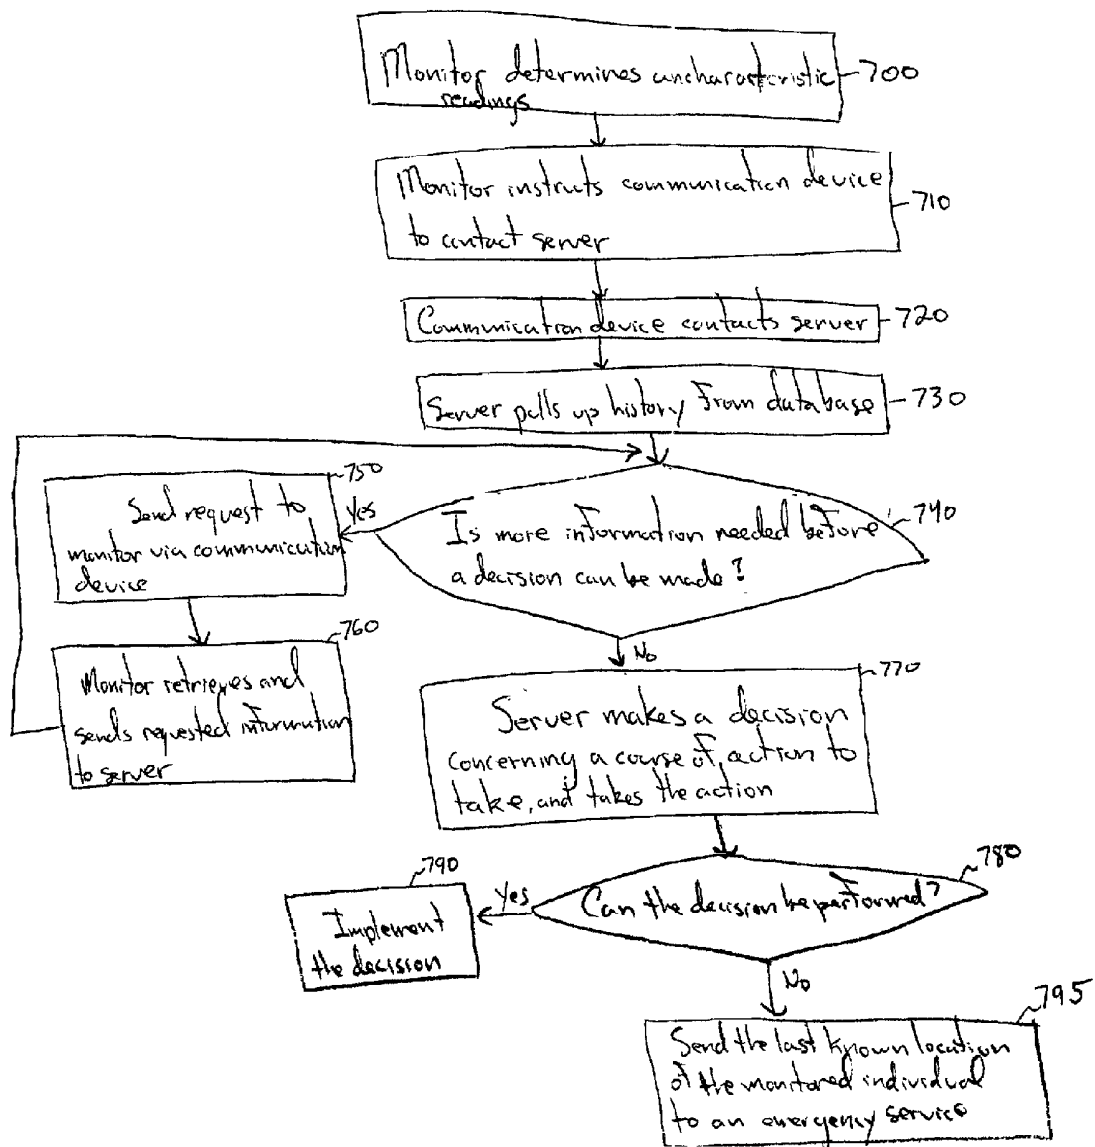 Monitor determines uncharacteristic
readings
700
Monitor instructs communication device
to contact server
710
Communication device contacts server
720
Server pulls up history from database
730
Is more information needed before
a decision can be made?
740
Yes
750
Send request to
monitor via communication
device
760
Monitor retrieves and
sends requested information
to server
No
770
Server makes a decision
concerning a course of action to
take, and takes the action
780
Can the decision be performed?
Yes
790
Implement
the decision
No
795
Send the last known location
of the monitored individual
to an emergency service